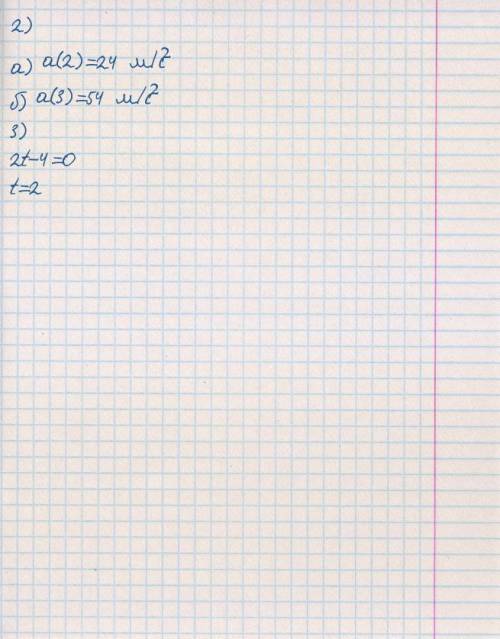 2)
а) a(2)=24 м/с²
б) a(3)=54 м/с²
3)
2t-4=0
t=2